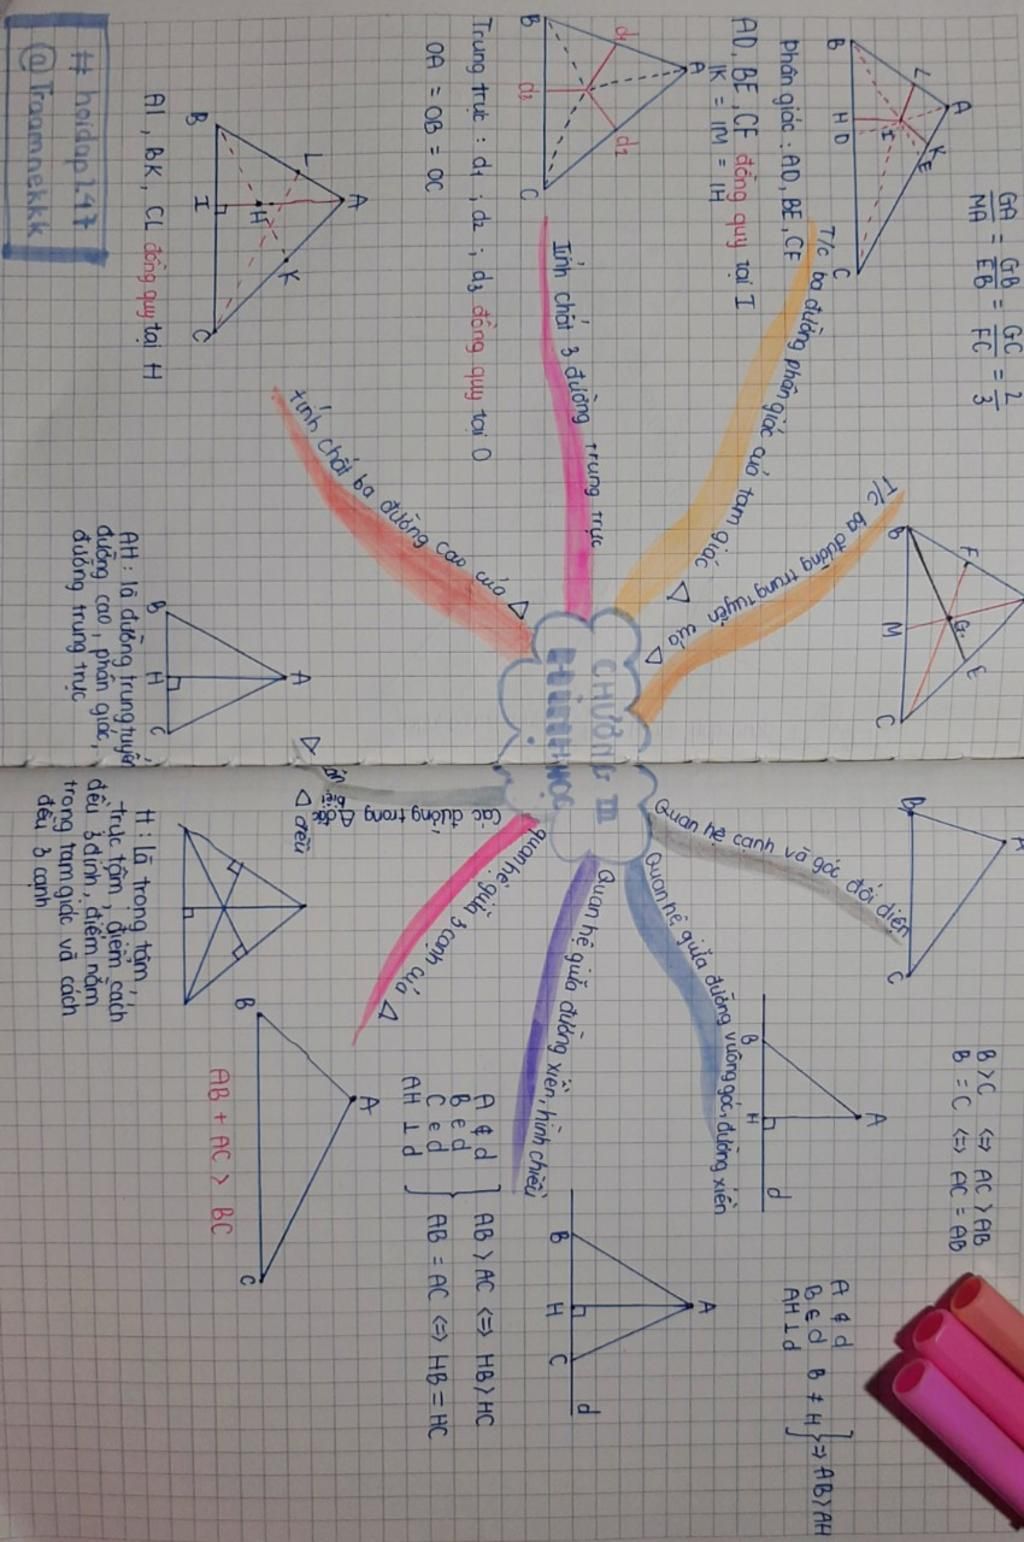 CHƯƠNG III
HÌNH HỌC
T/c ba đường trung tuyến của △
A
B
C
F
G
E
M
GA/MA = GB/EB = GC/FC = 2/3
T/c ba đường phân giác của tam giác △
A
B
C
L
K
E
I
H D
phân giác : AD, BE, CF
AD, BE, CF đồng quy tại I
IK = IM = IH
Tính chất 3 đường trung trực
A
B
C
d1
d2
d3
Trung trực : d1 ; d2 ; d3 đồng quy tại O
OA = OB = OC
tính chất ba đường cao của △
A
B
C
L
K
H
I
AI , BK, CL đồng quy tại H
# hoidap247
@Traamnekkk
Quan hệ cạnh và góc đối diện
A
B
C
B > C <=> AC > AB
B = C <=> AC = AB
Quan hệ giữa đường vuông góc, đường xiên
A
B
H
d
A ∉ d
B ∈ d B ≠ H } => AB > AH
AH ⊥ d
Quan hệ giữa đường xiên, hình chiếu
A
B
H
C
d
A ∉ d
B ∈ d
C ∈ d
AH ⊥ d
AB > AC <=> HB > HC
AB = AC <=> HB = HC
quan hệ giữa 3 cạnh của △
A
B
C
AB + AC > BC
Các đường trong
△ cân
△ đều
A
B
H
C
AH : là đường trung tuyến
đường cao, phân giác,
đường trung trực
H : là trong tâm,
trực tâm, điểm cách
đều 3 đỉnh, điểm nằm
trong tam giác và cách
đều 3 cạnh